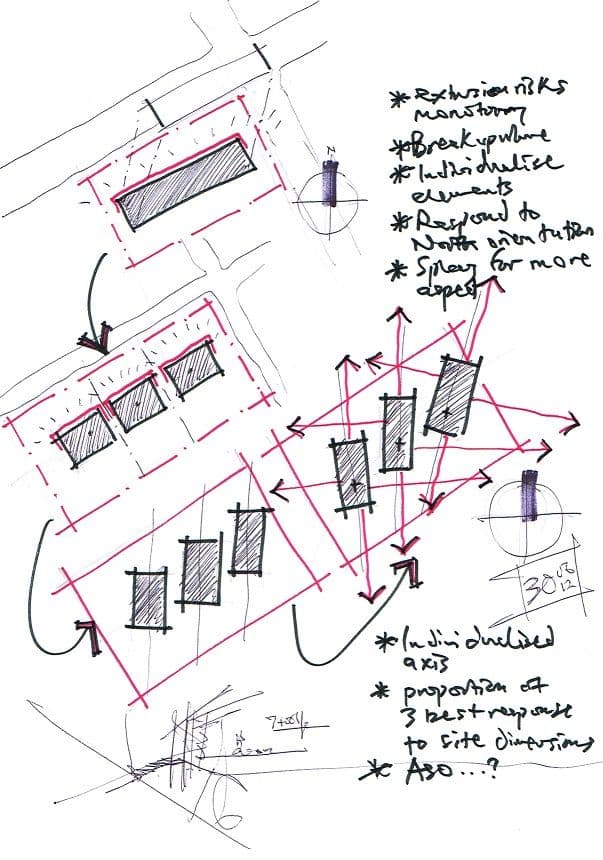 * Extrusion risks
monotony
* Break up whole
* Individualise
elements
* Respond to
North orientation
* Splay for more
aspect
N
30 06
12
* Individualised
axis
* proportion of
3 best response
to site dimensions
* ABO...?